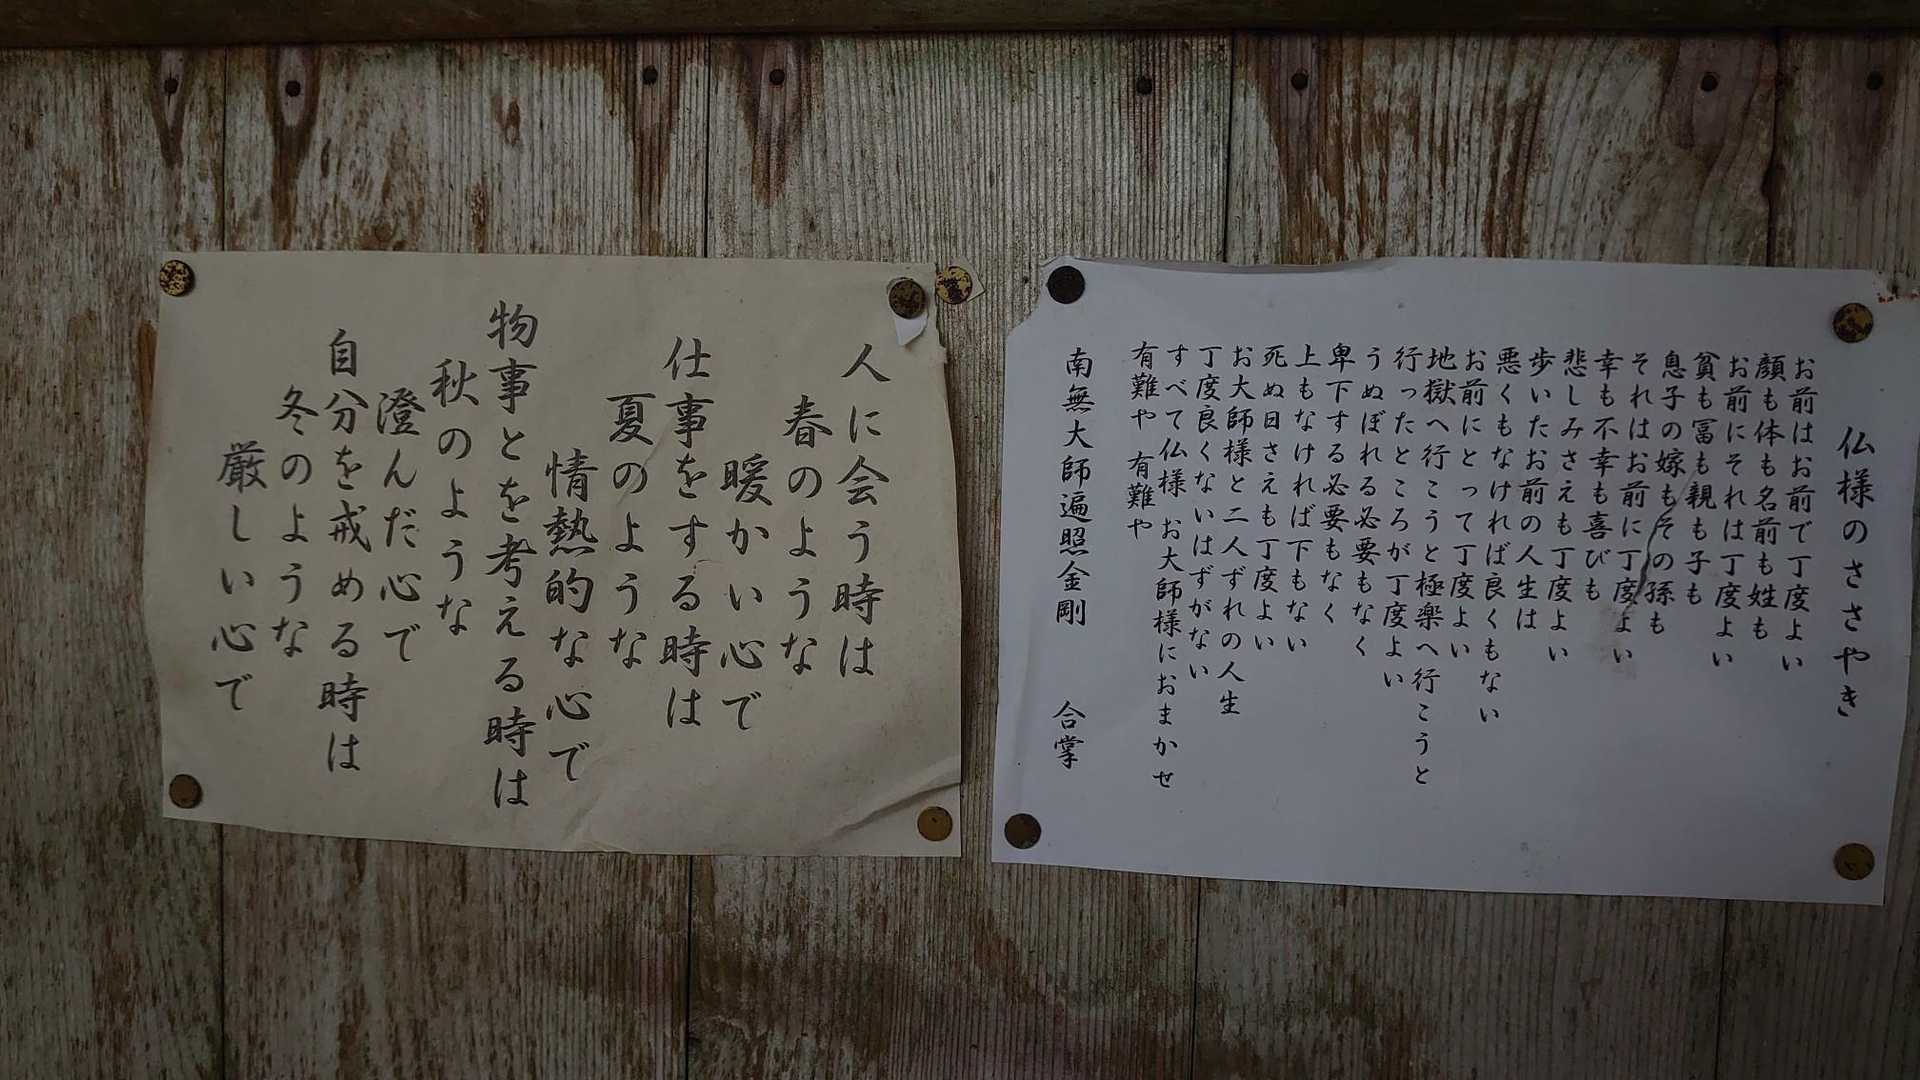 仏様のささやき
お前はお前で丁度よい
顔も体も名前も姓も
お前にそれは丁度よい
貧も冨も親も子も
息子の嫁もその孫も
それはお前に丁度よい
幸も不幸も喜びも
悲しみさえも丁度よい
歩いたお前の人生は
悪くもなければ良くもない
お前にとって丁度よい
地獄へ行こうと極楽へ行こうと
行ったところが丁度よい
うぬぼれる必要もなく
卑下する必要もなく
上もなければ下もない
死ぬ日さえも丁度よい
お大師様と二人ずれの人生
丁度良くないはずがない
すべて仏様 お大師様におまかせ
有難や 有難や
南無大師遍照金剛 合掌
人に会う時は
春のような
暖かい心で
仕事をする時は
夏のような
情熱的な心で
物事とを考える時は
秋のような
澄んだ心で
自分を戒める時は
冬のような
厳しい心で